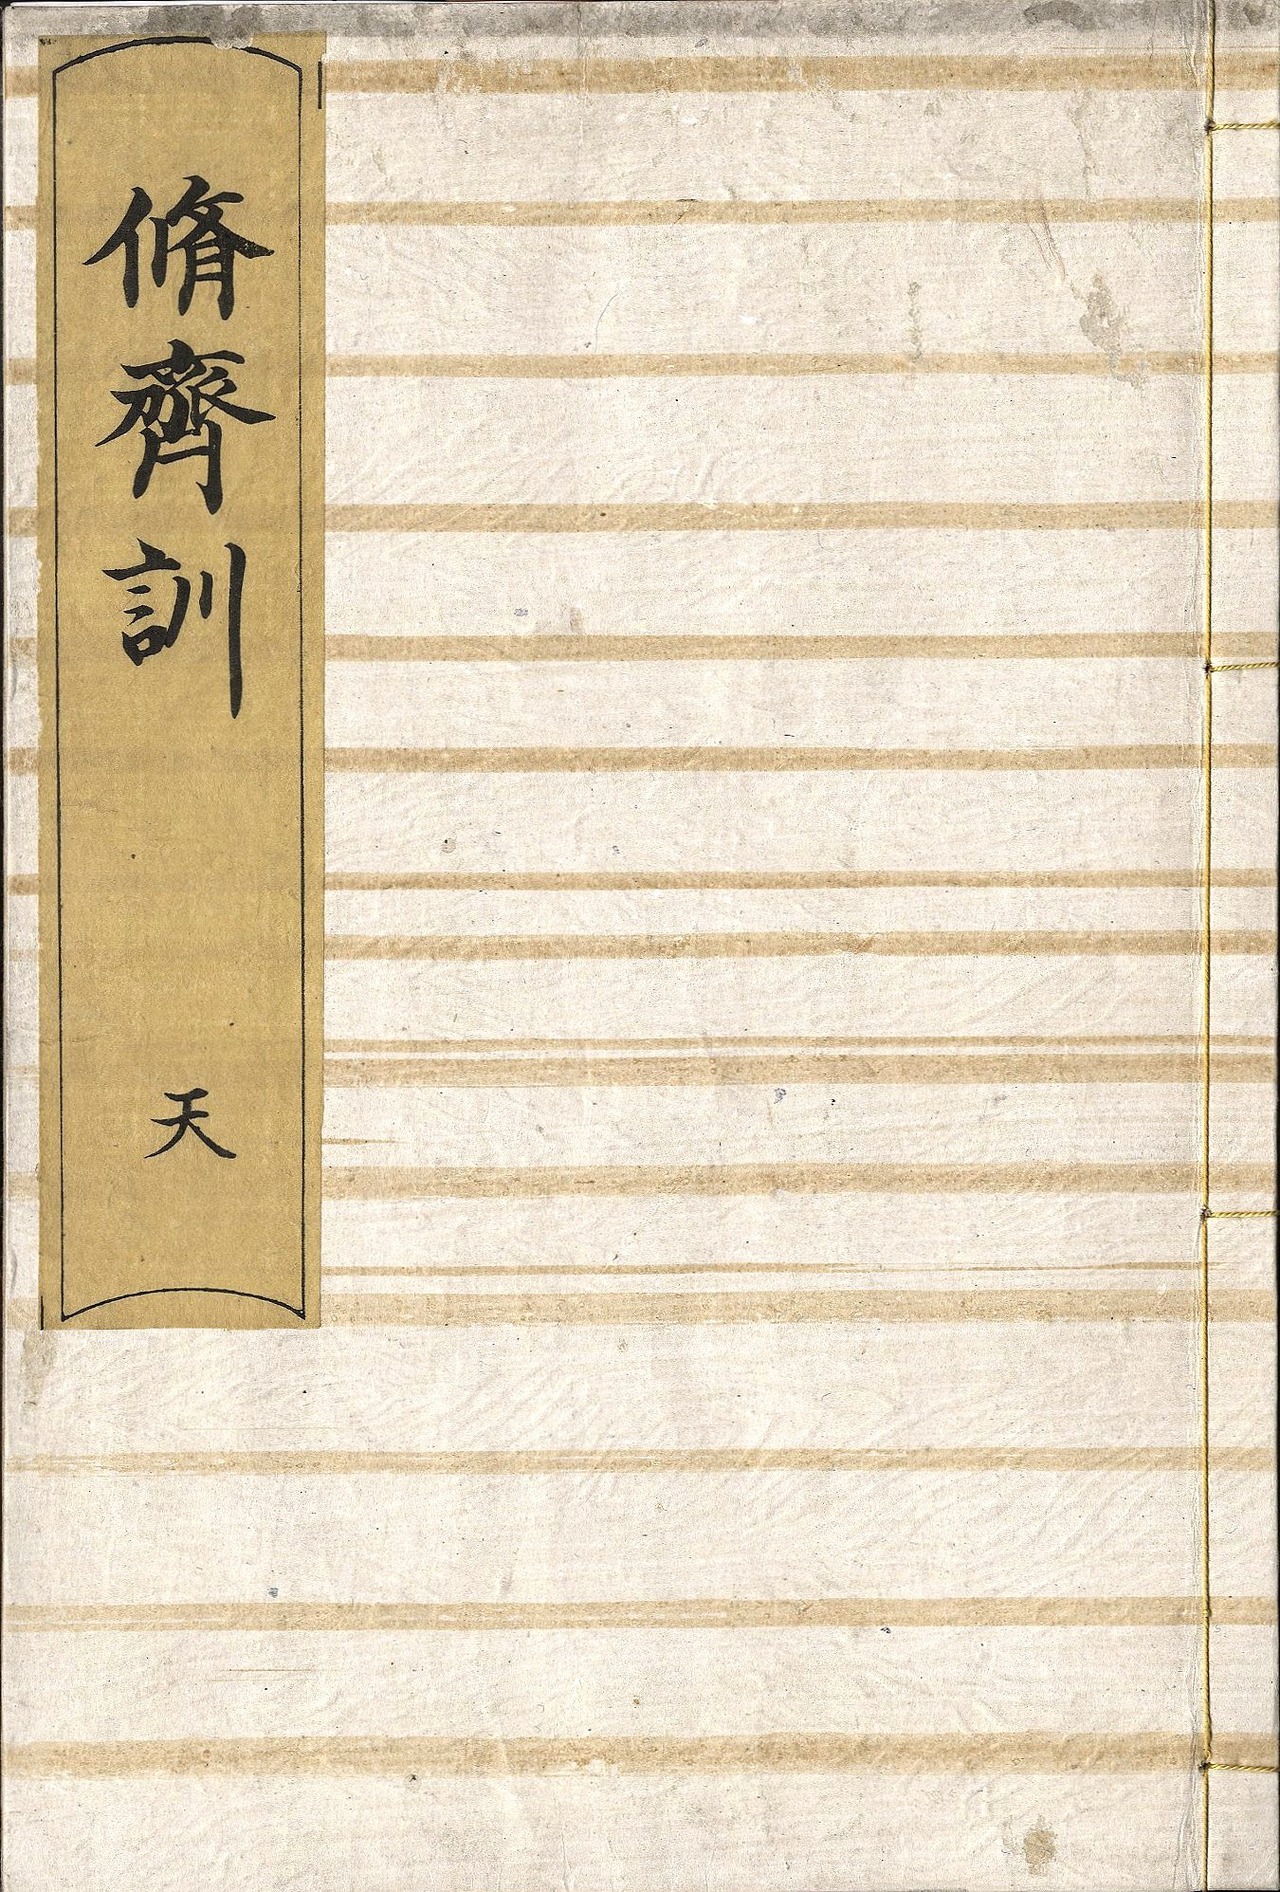 脩齊訓
天